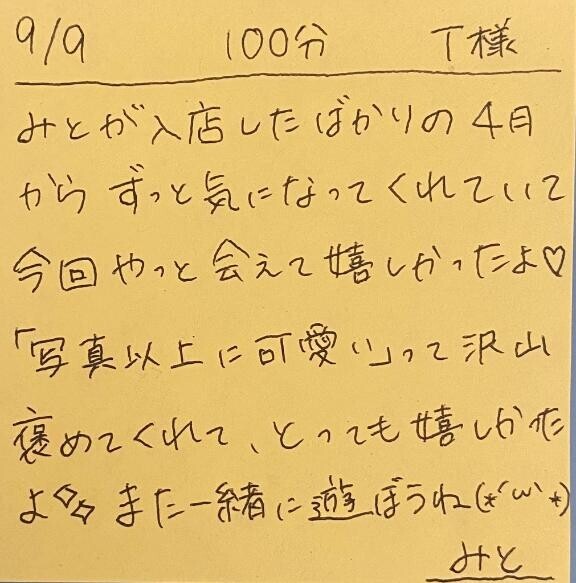 9/9 100分 T様
みとが入店したばかりの4月
からずっと気になってくれていて
今回やっと会えて嬉しかったよ♡
「写真以上に可愛い」って沢山
褒めてくれて、とっても嬉しかった
よ✧✧また一緒に遊ぼうね(*´ω`*)
みと